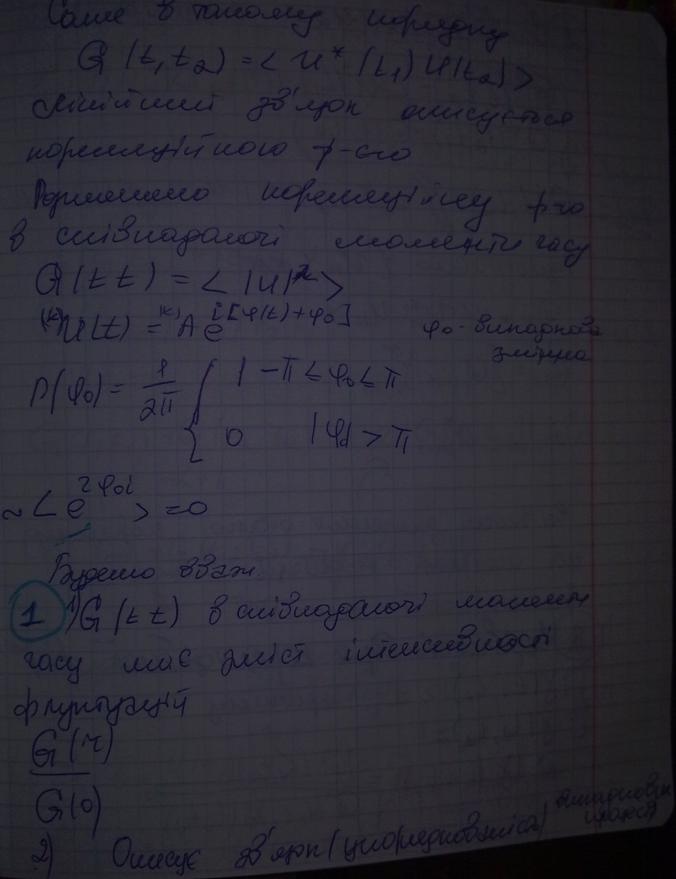 Саме в такому порядку
G(t₁t₂) = < U* (t₁) U(t₂) >
лінійний зв'язок описується
кореляційною ф-єю
кореляційну ф-ю
в співпадаючі моменти часу
G(t t) = < |U|² >
U(t) = A e^{i[φ(t)+φ₀]} φ₀ - випадкова
змінна
P(φ₀) = 1/2π { 1 -π ≤ φ₀ ≤ π
0 |φ₀| > π
~ < e^{2φ₀i} > = 0
Будемо вваж.
1 1) G(t t) в співпадаючі моменти
часу має зміст інтенсивності
флуктуацій
G(τ)
G(0)
2) Описує зв'язок (упорядкованість) випадкових
процесів